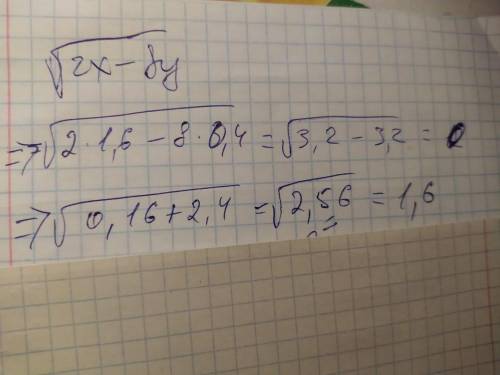 √2x-8y
=>√2·1,6-8·0,4=√3,2-3,2=0
=>√0,16+2,4=√2,56=1,6